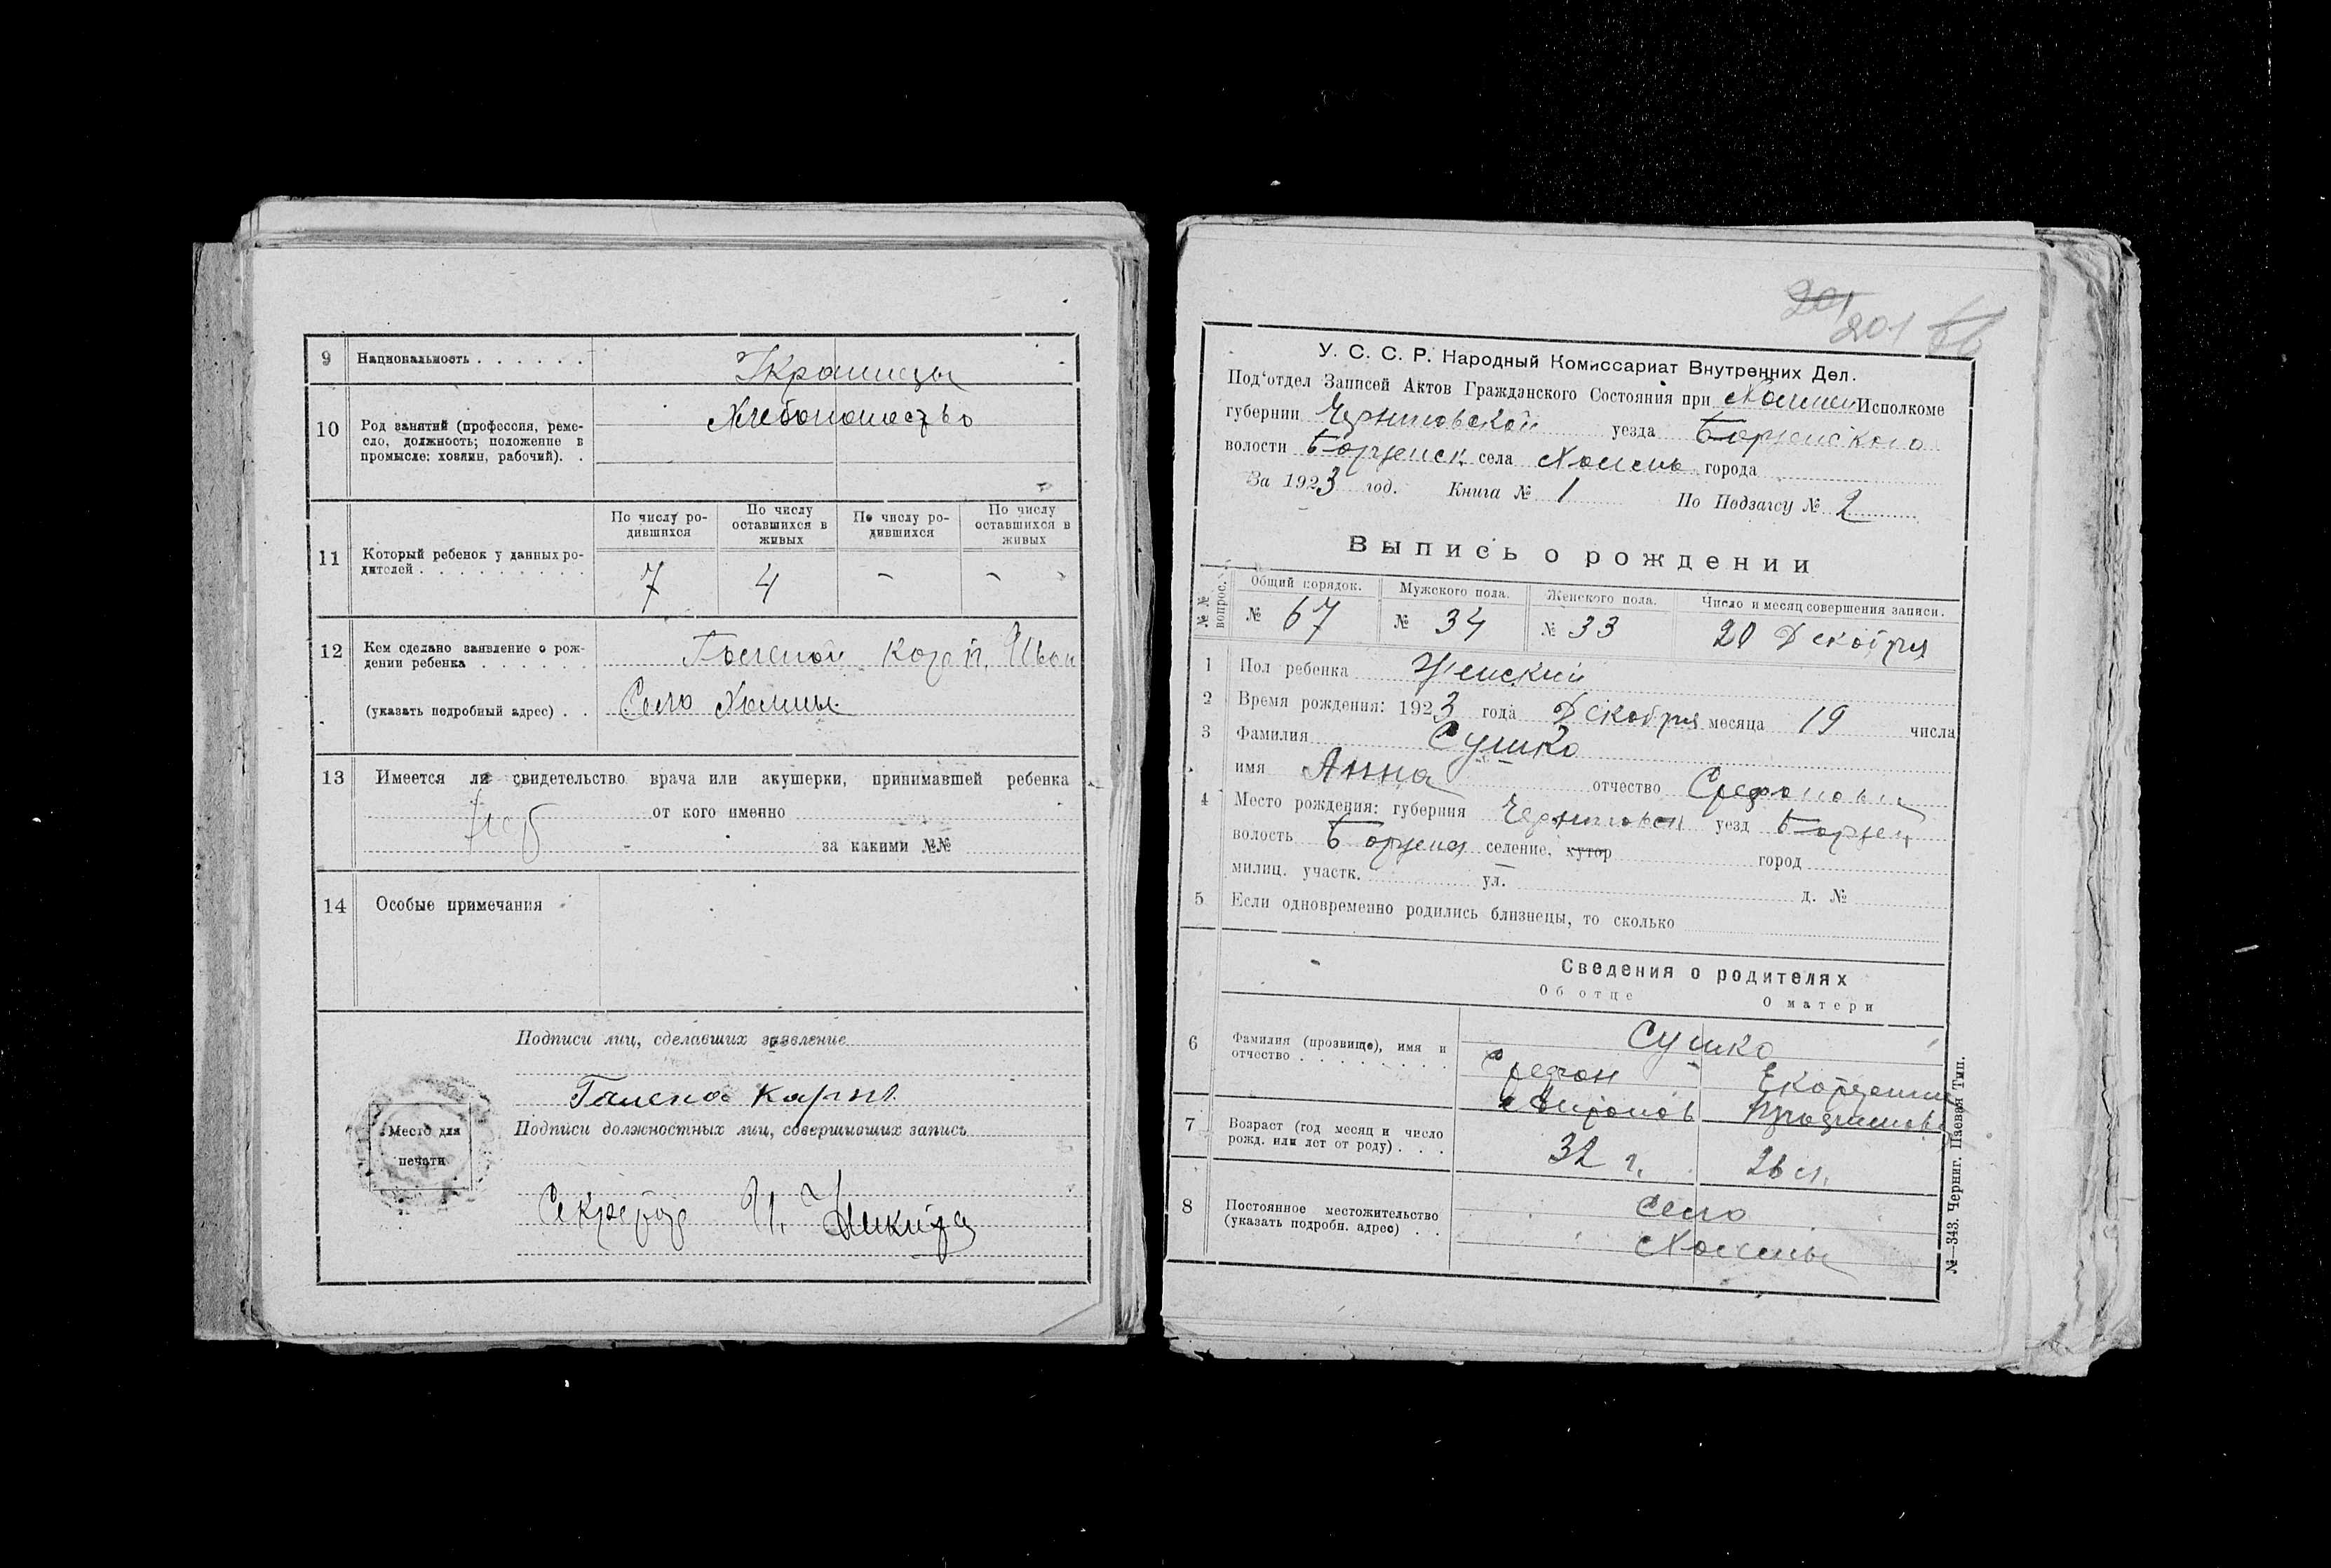 9 Национальность . . . . . . Украинцы
10 Род занятий (профессия, реме-
сло, должность; положение в
промысле: хозяин, рабочий). .
Хлебопашество
11 Который ребенок у данных ро-
дителей . . . . . . . . .
По числу ро-
дившихся
По числу
оставшихся в
живых
По числу ро-
дившихся
По числу
оставшихся в
живых
7 4 - -
12 Кем сделано заявление о рож-
дении ребенка . . . . . .
(указать подробный адрес) . .
Село Холмы
13 Имеется ли свидетельство врача или акушерки, принимавшей ребенка
от кого именно
за какими №№
14 Особые примечания
Подписи лиц, сделавших заявление
Подписи должностных лиц, совершивших запись
Место для
печати
И. Никита
201
201
У. С. С. Р. Народный Комиссариат Внутренних Дел.
Под'отдел Записей Актов Гражданского Состояния при Исполкоме
губернии Черниговской уезда Борзенского
волости Борзенск села города
За 1923 год. Книга № 1 По Подзагсу № 2
Выпись о рождении
№№ вопрос.
Общий порядок. Мужского пола. Женского пола. Число и месяц совершения записи.
№ 67 № 34 № 33 20 Декабря
1 Пол ребенка Женский
2 Время рождения: 1923 года Декабря месяца 19 числа
3 Фамилия Сушко
имя Анна отчество
4 Место рождения: губерния Черниговск уезд Борзен
волость селение, хутор город
милиц. участк. ул. д. №
5 Если одновременно родились близнецы, то сколько
Сведения о родителях
Об отце О матери
6 Фамилия (прозвище), имя и
отчество . . . . . .
Сушко
7 Возраст (год месяц и число
рожд. или лет от роду) . . .
32 г. 26 л.
8 Постоянное местожительство
(указать подробн. адрес) . .
Село
№—343. Черниг. Паевая Тип.